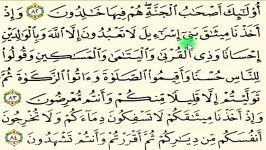 أُولَٰئِكَ أَصْحَابُ الْجَنَّةِ هُمْ فِيهَا خَالِدُونَ ٨٢ وَإِذْ
أَخَذْنَا مِيثَاقَ بَنِي إِسْرَائِيلَ لَا تَعْبُدُونَ إِلَّا اللَّهَ وَبِالْوَالِدَيْنِ
إِحْسَانًا وَذِي الْقُرْبَىٰ وَالْيَتَامَىٰ وَالْمَسَاكِينِ وَقُولُوا
لِلنَّاسِ حُسْنًا وَأَقِيمُوا الصَّلَاةَ وَآتُوا الزَّكَاةَ ثُمَّ
تَوَلَّيْتُمْ إِلَّا قَلِيلًا مِنْكُمْ وَأَنْتُمْ مُعْرِضُونَ ٨٣
وَإِذْ أَخَذْنَا مِيثَاقَكُمْ لَا تَسْفِكُونَ دِمَاءَكُمْ وَلَا تُخْرِجُونَ
أَنْفُسَكُمْ مِنْ دِيَارِكُمْ ثُمَّ أَقْرَرْتُمْ وَأَنْتُمْ تَشْهَدُونَ ٨٤